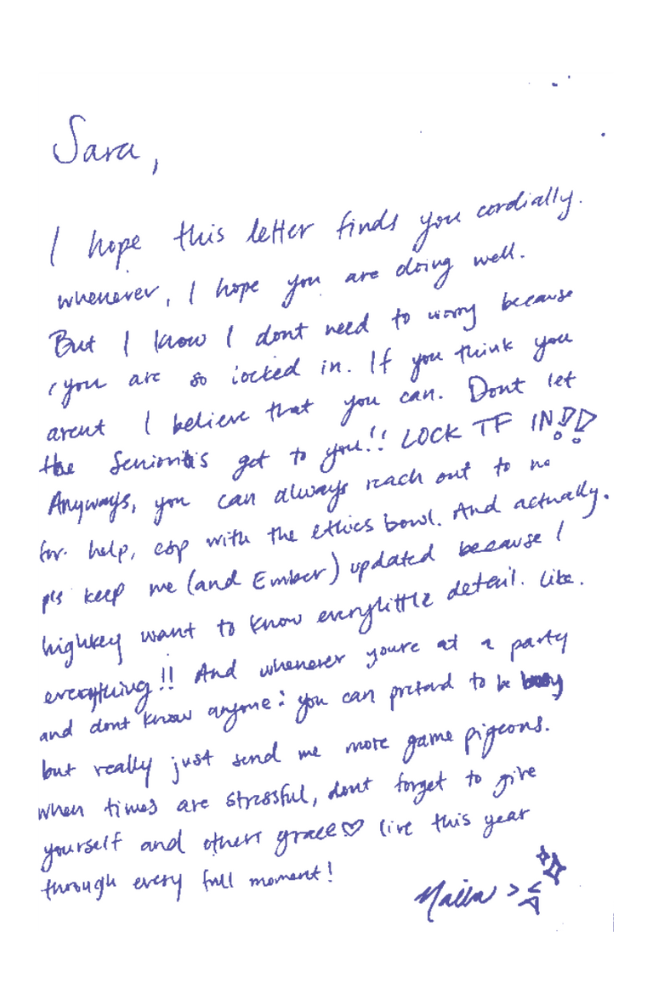 Sara,
I hope this letter finds you cordially.
whenever, I hope you are doing well.
But I know I dont need to worry because
you are so locked in. If you think you
arent I believe that you can. Dont let
the get to you!! LOCK TF IN!!
Anyways, you can always reach out to me
for help, esp with the ethics bowl. And actually.
pls keep me (and Ember) updated because I
highkey want to know everylittle detail. like.
everything!! And whenever youre at a party
and dont know anyone: you can pretend to be busy
but really just send me more game pigeons.
when times are stressful, dont forget to give
yourself and others grace♡ live this year
through every full moment!